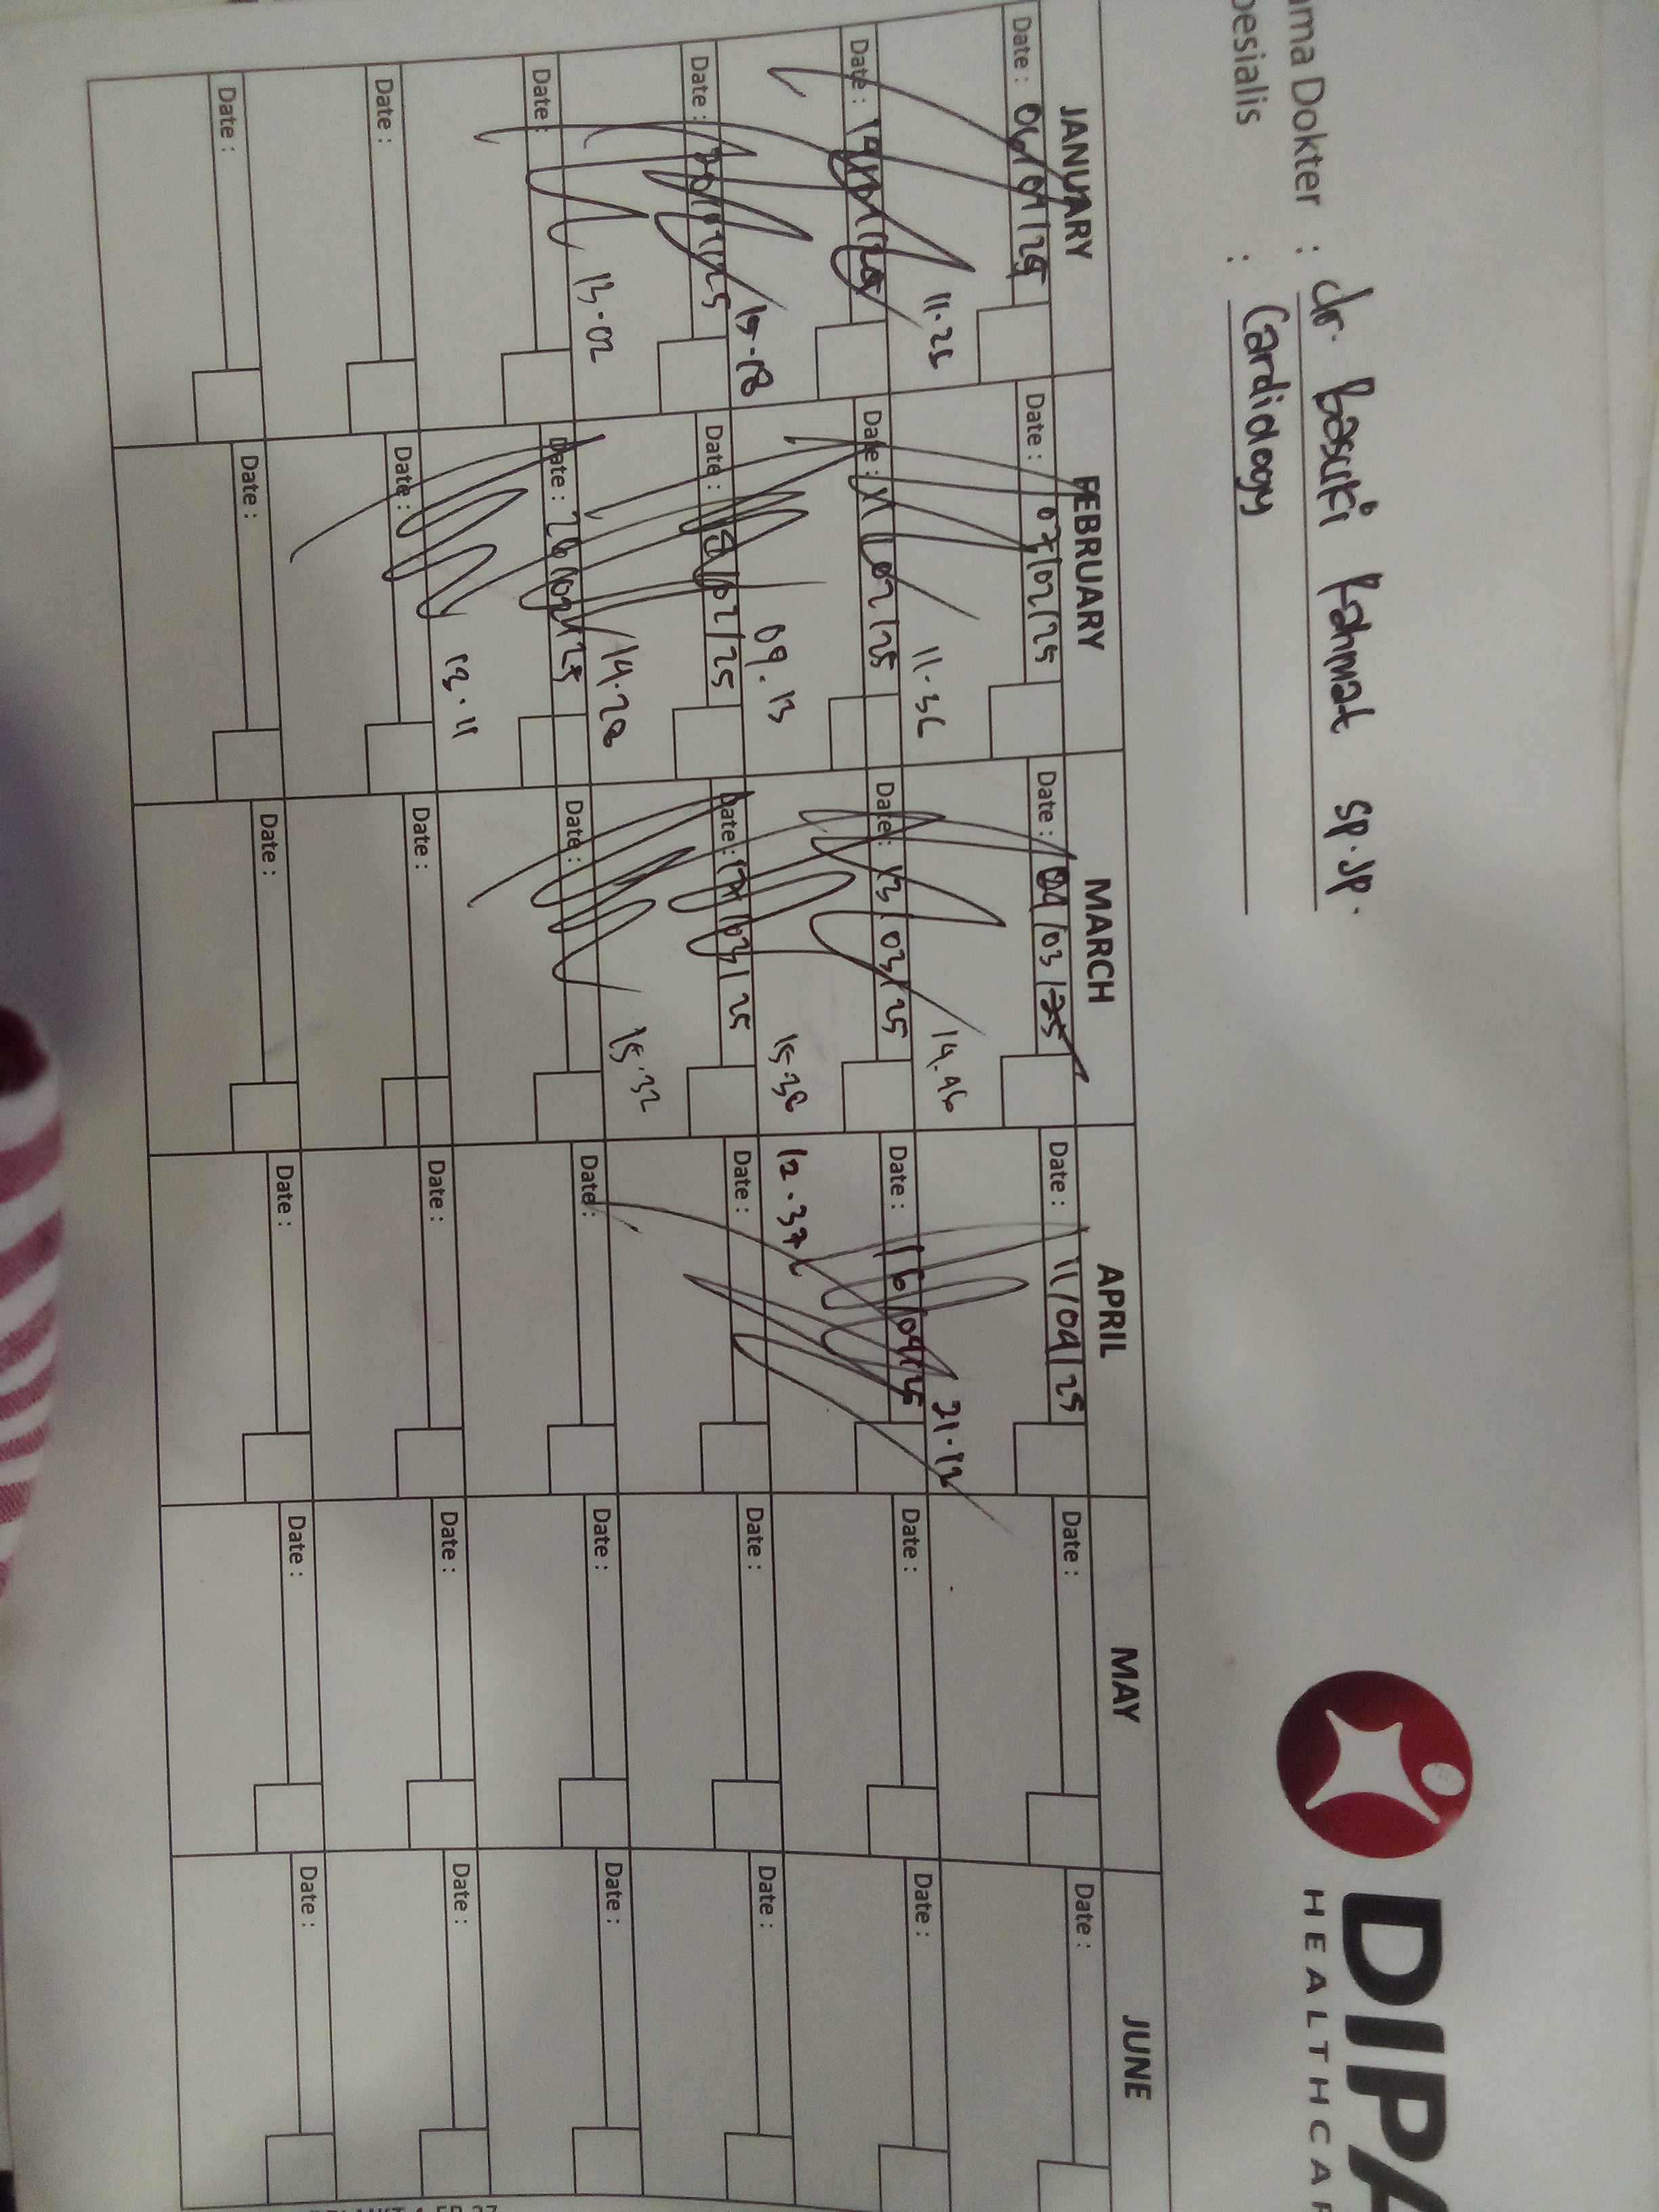 DIPA
HEALTHCAR
ama Dokter : dr. Basuki Rahmat Sp.JP.
pesialis : Cardiology
JANUARY FEBRUARY MARCH APRIL MAY JUNE
Date : 06/01/25 Date : 07/02/25 Date : 04/03/25 Date : 11/04/25 Date : Date :
11.25 11.36 14.46 21.12
Date : 14/01/25 Date : 02/25 Date : 13/03/25 Date : 16/04/25 Date : Date :
15.18 09.13 15.38 12.37
Date : 20/01/25 Date : 02/25 Date : 17/03/25 Date : Date : Date :
13.02 14.28 15.32
Date : Date : 26/02/25 Date : Date : Date : Date :
13.11
Date : Date : Date : Date : Date : Date :
Date : Date : Date : Date : Date : Date :